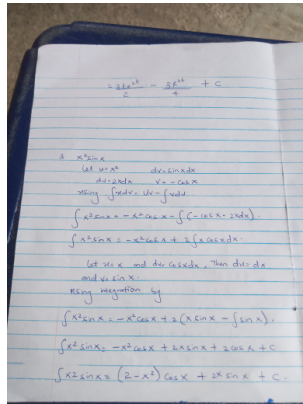 x² sin x
Let u = x² dv = sin x dx
du = 2x dx v = - cos x
Using ∫ u dv = uv - ∫ v du
∫ x² sin x = - x² cos x - ∫ (- cos x · 2x dx).
∫ x² sin x = - x² cos x + 2 ∫ x cos x dx.
Let u = x and dv = cos x dx, then du = dx
and v = sin x.
Using integration by
∫ x² sin x = - x² cos x + 2 (x sin x - ∫ sin x).
∫ x² sin x = - x² cos x + 2x sin x + 2 cos x + C
∫ x² sin x = (2 - x²) cos x + 2x sin x + C.